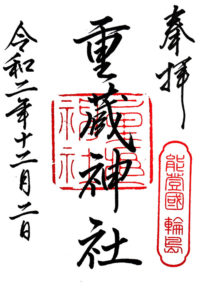 奉拝
能登國 輪島
重蔵神社
令和二年十二月二日